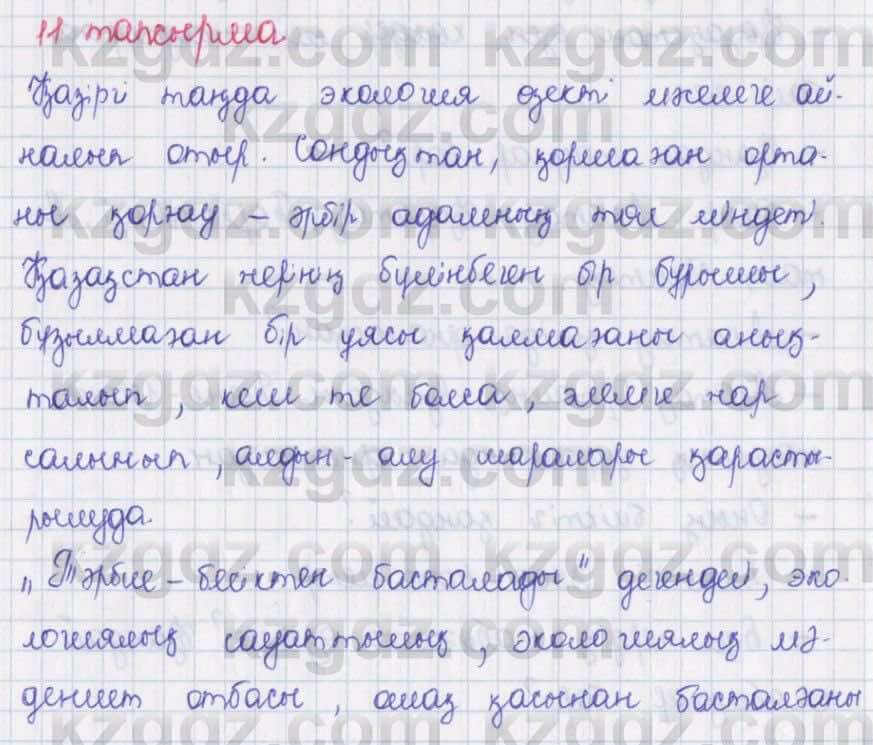 11 тапсырма
Қазіргі таңда экология өзекті мәселеге ай-
налып отыр. Сондықтан, қоршаған орта-
ны қорғау – әрбір адамның төл міндеті.
Қазақстан жерінің бүлінбеген бір бұрышы,
бұзылмаған бір ұясы қалмағаны анық-
талып, кеш те болса, әлемге жар
салынып, алдын-алу шаралары қарасты-
рылуда.
„Тәрбие – бесіктен басталады" дегендей, эко-
логиялық сауаттылық, экологиялық мә-
дениет отбасы, ошақ қасынан басталғаны
kzgdz.com